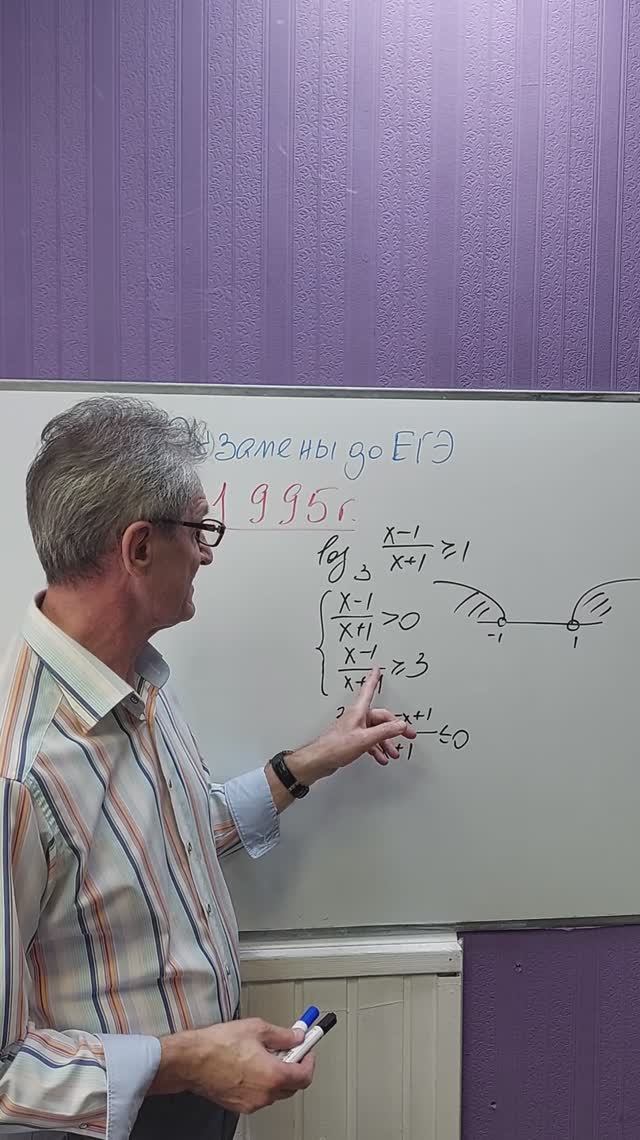 Экзамены до ЕГЭ
1995г.
log₃ (x-1)/(x+1) ≥ 1
(x-1)/(x+1) > 0
-1 1
(x-1)/(x+1) ≥ 3
-x+1
+1 ≤ 0